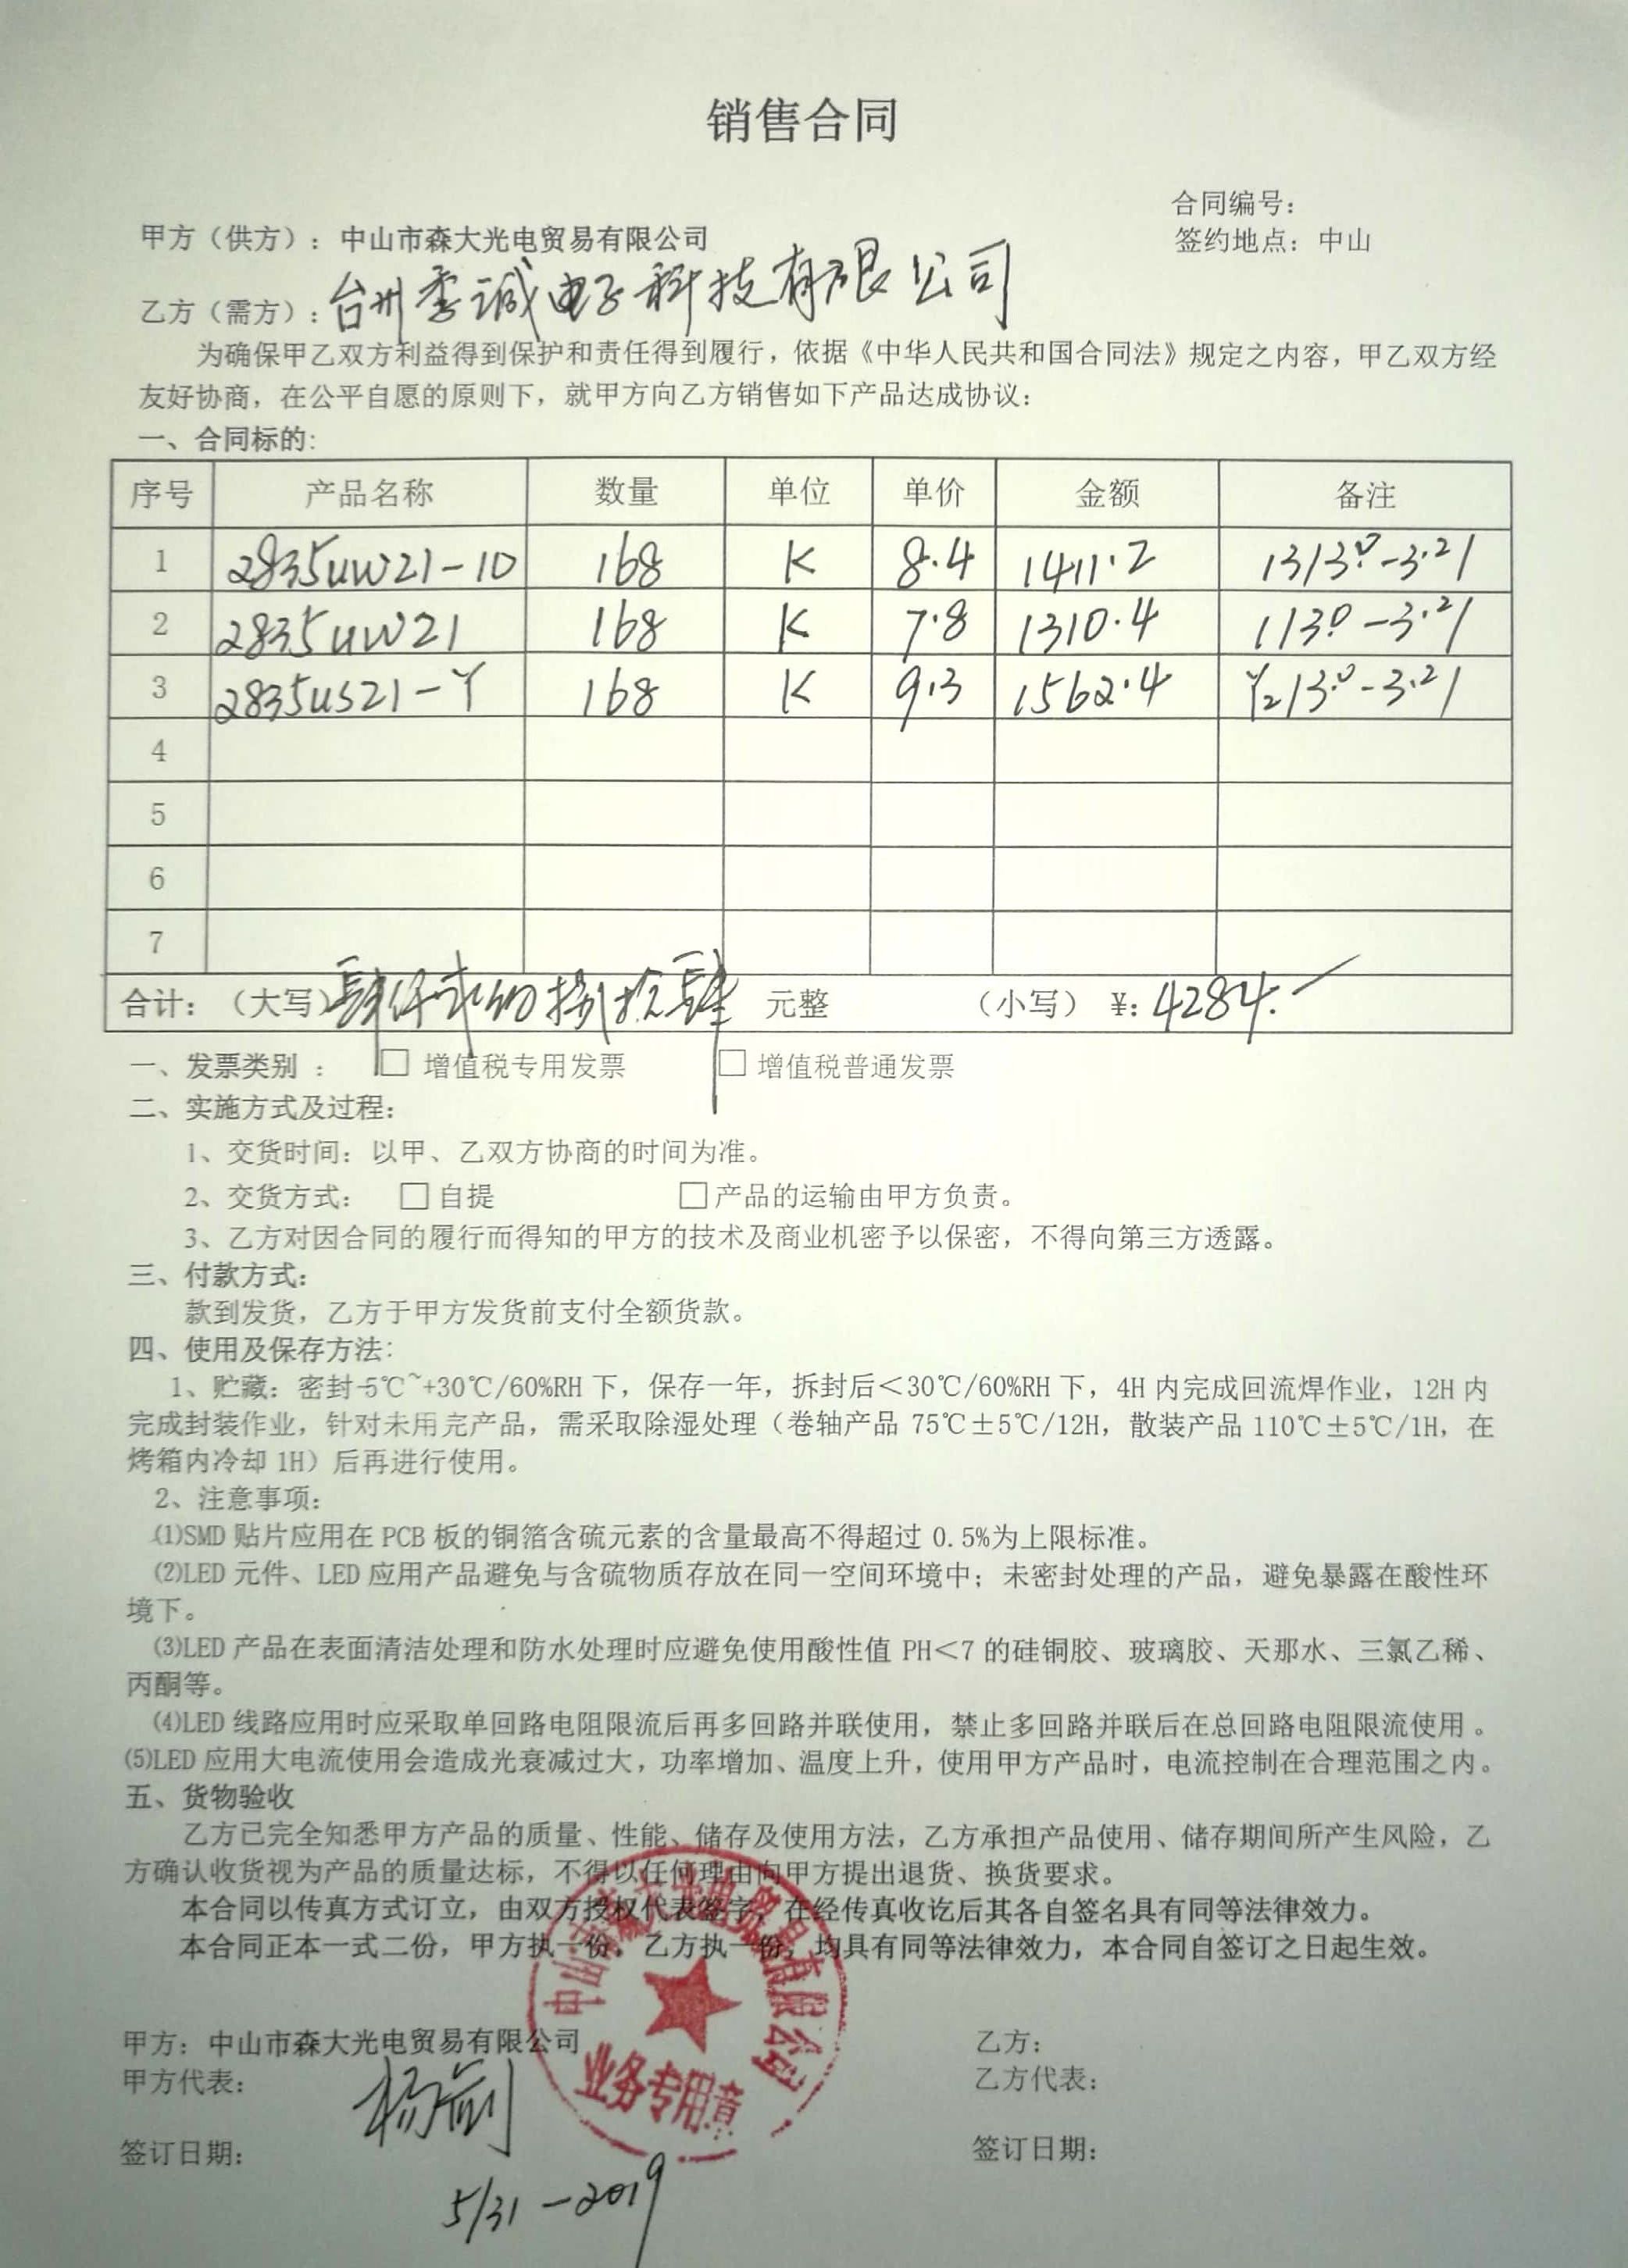 销售合同
合同编号：
甲方（供方）：中山市森大光电贸易有限公司
签约地点：中山
乙方（需方）：台州季诚电子科技有限公司
为确保甲乙双方利益得到保护和责任得到履行，依据《中华人民共和国合同法》规定之内容，甲乙双方经
友好协商，在公平自愿的原则下，就甲方向乙方销售如下产品达成协议：
一、合同标的：
序号 产品名称 数量 单位 单价 金额 备注
1 2835UW21-10 168 K 8.4 1411.2 13/3.0-3.2/
2 2835UW21 168 K 7.8 1310.4 1/3.0-3.2/
3 2835US21-Y 168 K 9.3 1562.4 Y2/3.0-3.2/
4
5
6
7
合计：（大写）肆仟贰佰捌拾肆 元整 （小写）¥：4284.
一、发票类别 ： □ 增值税专用发票 □ 增值税普通发票
二、实施方式及过程：
1、交货时间：以甲、乙双方协商的时间为准。
2、交货方式： □ 自提 □产品的运输由甲方负责。
3、乙方对因合同的履行而得知的甲方的技术及商业机密予以保密，不得向第三方透露。
三、付款方式：
款到发货，乙方于甲方发货前支付全额货款。
四、使用及保存方法：
1、贮藏：密封-5℃~+30℃/60%RH 下，保存一年，拆封后＜30℃/60%RH 下，4H 内完成回流焊作业，12H 内
完成封装作业，针对未用完产品，需采取除湿处理（卷轴产品 75℃±5℃/12H，散装产品 110℃±5℃/1H，在
烤箱内冷却 1H）后再进行使用。
2、注意事项：
⑴SMD 贴片应用在 PCB 板的铜箔含硫元素的含量最高不得超过 0.5%为上限标准。
⑵LED 元件、LED 应用产品避免与含硫物质存放在同一空间环境中；未密封处理的产品，避免暴露在酸性环
境下。
⑶LED 产品在表面清洁处理和防水处理时应避免使用酸性值 PH＜7 的硅铜胶、玻璃胶、天那水、三氯乙稀、
丙酮等。
⑷LED 线路应用时应采取单回路电阻限流后再多回路并联使用，禁止多回路并联后在总回路电阻限流使用 。
⑸LED 应用大电流使用会造成光衰减过大，功率增加、温度上升，使用甲方产品时，电流控制在合理范围之内。
五、货物验收
乙方已完全知悉甲方产品的质量、性能、储存及使用方法，乙方承担产品使用、储存期间所产生风险，乙
方确认收货视为产品的质量达标，不得以任何理由向甲方提出退货、换货要求。
本合同以传真方式订立，由双方授权代表签字，在经传真收讫后其各自签名具有同等法律效力。
本合同正本一式二份，甲方执一份，乙方执一份，均具有同等法律效力，本合同自签订之日起生效。
中山市森大光电贸易有限公司
业务专用章
甲方：中山市森大光电贸易有限公司 乙方：
甲方代表： 杨剑 乙方代表：
签订日期： 签订日期：
5/31-2019